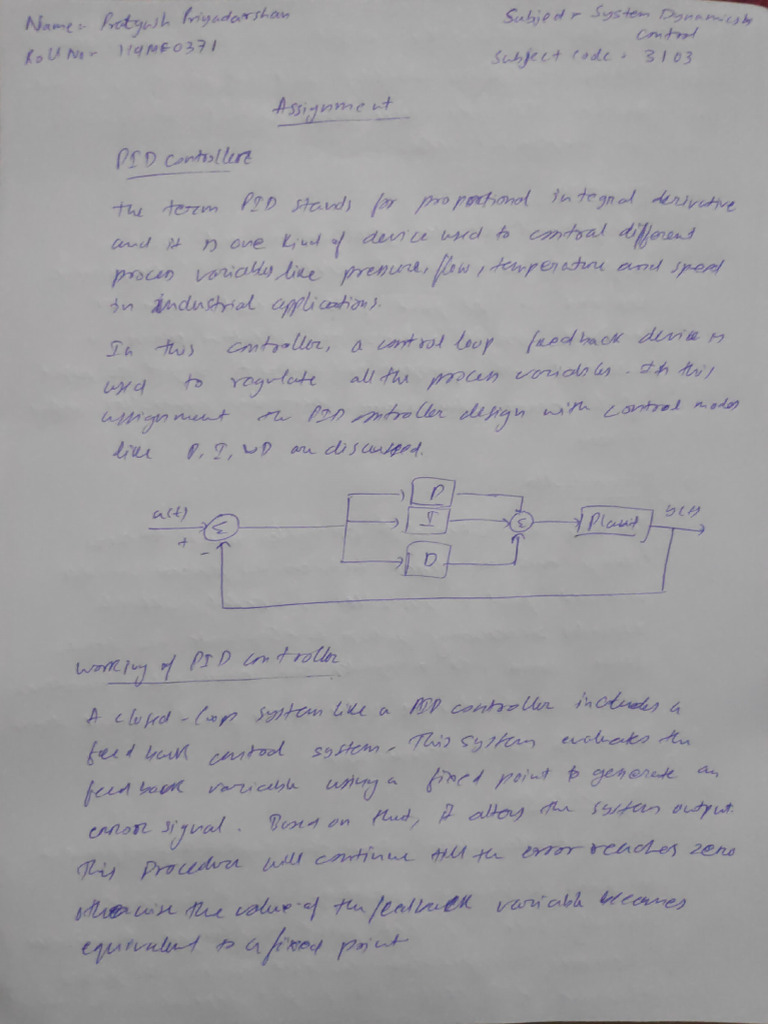 Name:- Pratyush Priyadarshan
Subject:- System Dynamics &
control
Roll No:- 119ME0371
Subject code:- 3103
Assignment
PID controller
The term PID stands for proportional integral derivative
and it is one kind of device used to control different
process variables like pressure, flow, temperature and speed
in industrial applications.
In this controller, a control loop feedback device is
used to regulate all the process variables. In this
assignment the PID controller design with control modes
like P, I, D are discussed.
P
u(t)
Σ
I
Σ
Plant
y(t)
+
-
D
Working of PID controller
A closed-loop system like a PID controller includes a
feedback control system. This system evaluates the
feedback variable using a fixed point to generate an
error signal. Based on that, it alters the system output.
This Procedure will continue till the error reaches zero
otherwise the value of the feedback variable becomes
equivalent to a fixed point